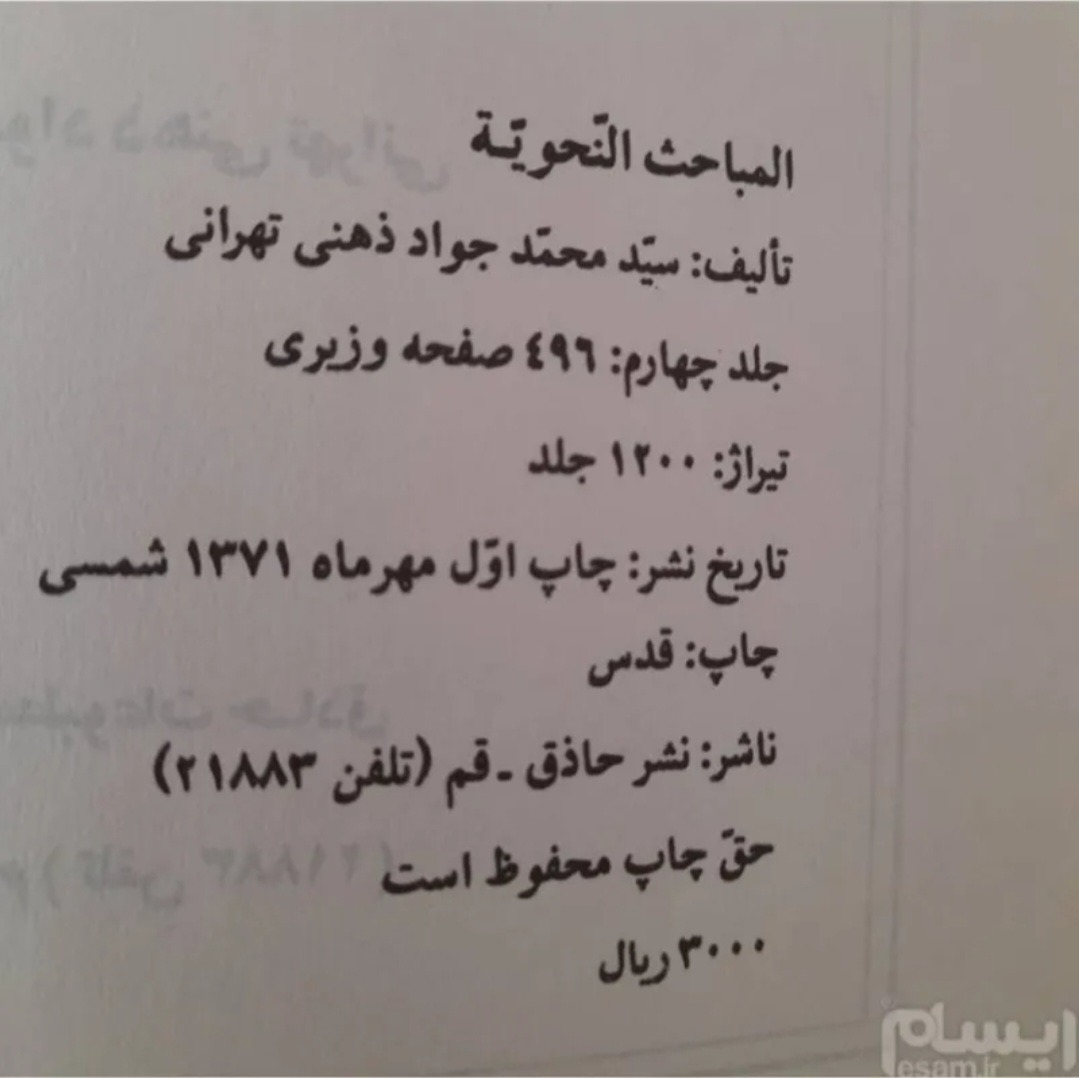 المباحث النّحويّـة
تأليف: سيّد محمّد جواد ذهنی تهرانی
جلد چهارم: ٤٩٦ صفحه وزیری
تیراژ: ۱۲۰۰ جلد
تاریخ نشر: چاپ اوّل مهرماه ۱۳۷۱ شمسی
چاپ: قدس
ناشر: نشر حاذق ـ قم (تلفن ۲۱۸۸۳)
حقّ چاپ محفوظ است
۳۰۰۰ ریال
ایسام
esam.ir